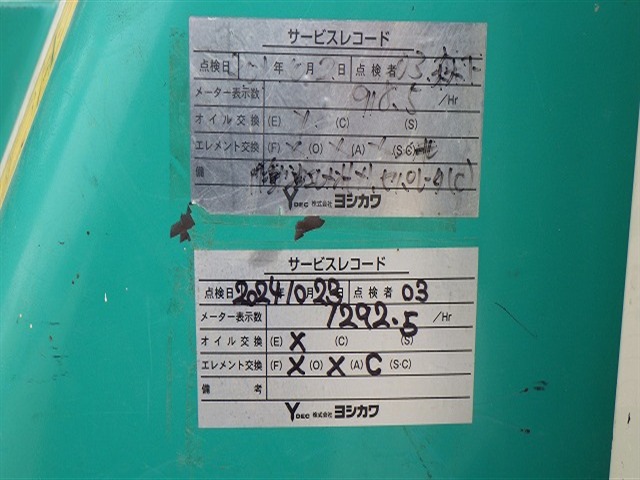 サービスレコード
点検日 年 月 日 点検者 03
メーター表示数 918.5 /Hr
オイル交換 (E) レ (C) (S)
エレメント交換 (F) レ (O) レ (A) レ (S·C)
備
YDEC 株式会社 ヨシカワ
サービスレコード
点検日 2024年10月23日 点検者 03
メーター表示数 1292.5 /Hr
オイル交換 (E) X (C) (S)
エレメント交換 (F) X (O) X (A) C (S·C)
備 考
YDEC 株式会社 ヨシカワ